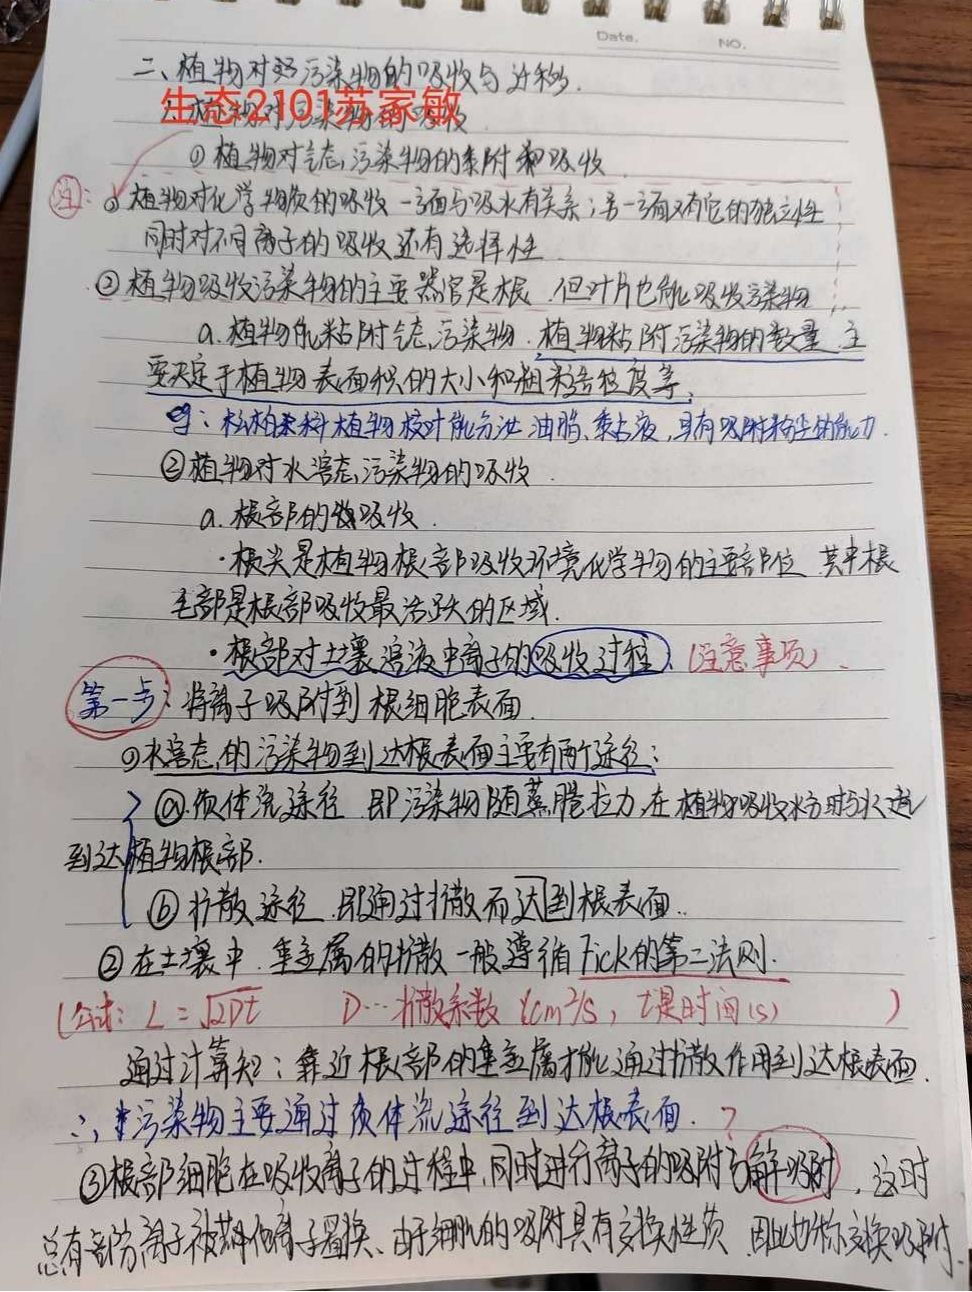 Date.
NO.
二、植物对污染物的吸收与迁移.
生态2101苏家敏
植物对污染物的吸收
①植物对气态污染物的黏附和吸收
注:
植物对化学物质的吸收一方面与吸水有关系;另一方面又有它的独立性
同时对不同离子的吸收还有选择性
②植物吸收污染物的主要器官是根.但叶片也能吸收污染物
a.植物能粘附气态污染物.植物粘附污染物的数量主
要决定于植物表面积的大小和粗糙程度等,
eg:松柏科植物枝叶能分泌油脂、黏液,具有吸附粉尘的能力.
②植物对水溶态污染物的吸收
a.根部的吸收.
·根尖是植物根部吸收环境化学物的主要部位 其中根
毛部是根部吸收最活跃的区域.
·根部对土壤溶液中离子的吸收过程.(注意事项).
第一步:将离子吸附到根细胞表面.
①水溶态的污染物到达根表面主要有两个途径:
ⓐ.质体流途径 即污染物随蒸腾拉力,在植物吸收水分时与水一起
到达植物根部.
ⓑ扩散途径.即通过扩散而达到根表面..
②在土壤中.重金属的扩散一般遵循Fick的第二法则.
(公式: L=√2Dt D…扩散系数 (cm²/s, t是时间(s) )
通过计算知:靠近根部的重金属才能通过扩散作用到达根表面.
∴污染物主要通过质体流途径到达根表面.?
③根部细胞在吸收离子的过程中,同时进行离子的吸附与解吸附,这时
总有部分离子被其他离子置换、由于细胞的吸附具有交换性质 因此也称交换吸附.